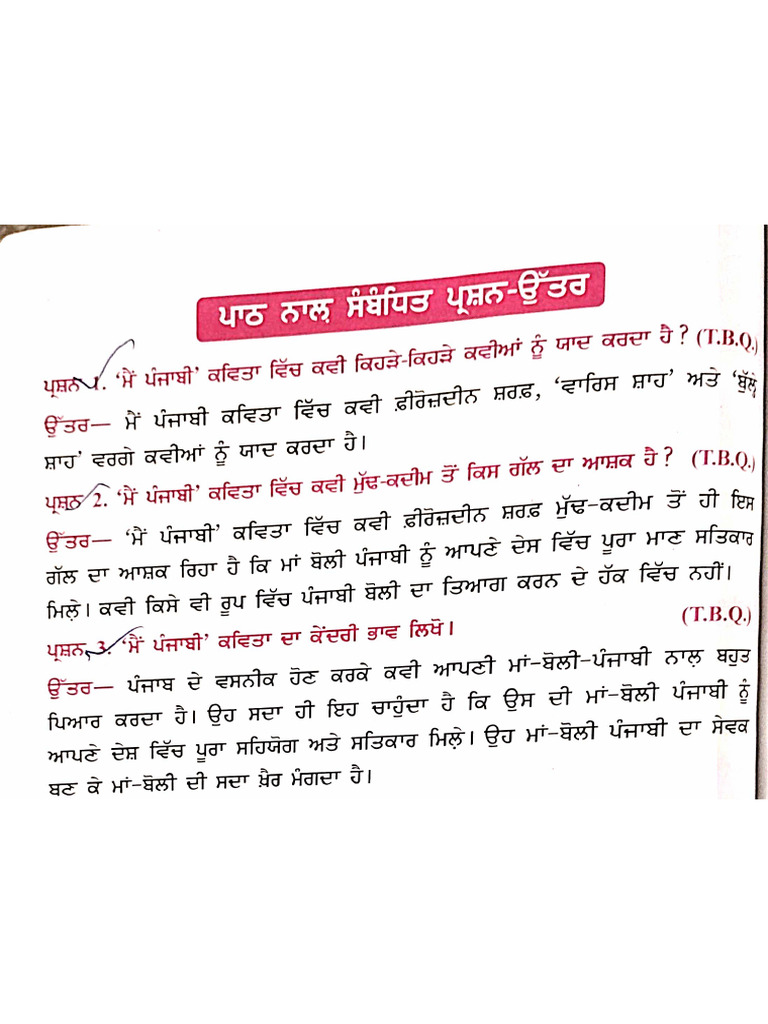 ਪਾਠ ਨਾਲ਼ ਸੰਬੰਧਿਤ ਪ੍ਰਸ਼ਨ-ਉੱਤਰ
ਪ੍ਰਸ਼ਨ 1. ‘ਮੈਂ ਪੰਜਾਬੀ’ ਕਵਿਤਾ ਵਿੱਚ ਕਵੀ ਕਿਹੜੇ-ਕਿਹੜੇ ਕਵੀਆਂ ਨੂੰ ਯਾਦ ਕਰਦਾ ਹੈ ? (T.B.Q.)
ਉੱਤਰ— ਮੈਂ ਪੰਜਾਬੀ ਕਵਿਤਾ ਵਿੱਚ ਕਵੀ ਫ਼ੀਰੋਜ਼ਦੀਨ ਸ਼ਰਫ਼, ‘ਵਾਰਿਸ ਸ਼ਾਹ’ ਅਤੇ ‘ਬੁੱਲ੍ਹੇ
ਸ਼ਾਹ’ ਵਰਗੇ ਕਵੀਆਂ ਨੂੰ ਯਾਦ ਕਰਦਾ ਹੈ।
ਪ੍ਰਸ਼ਨ 2. ‘ਮੈਂ ਪੰਜਾਬੀ’ ਕਵਿਤਾ ਵਿੱਚ ਕਵੀ ਮੁੱਢ-ਕਦੀਮ ਤੋਂ ਕਿਸ ਗੱਲ ਦਾ ਆਸ਼ਕ ਹੈ ? (T.B.Q.)
ਉੱਤਰ— ‘ਮੈਂ ਪੰਜਾਬੀ’ ਕਵਿਤਾ ਵਿੱਚ ਕਵੀ ਫ਼ੀਰੋਜ਼ਦੀਨ ਸ਼ਰਫ਼ ਮੁੱਢ-ਕਦੀਮ ਤੋਂ ਹੀ ਇਸ
ਗੱਲ ਦਾ ਆਸ਼ਕ ਰਿਹਾ ਹੈ ਕਿ ਮਾਂ ਬੋਲੀ ਪੰਜਾਬੀ ਨੂੰ ਆਪਣੇ ਦੇਸ ਵਿੱਚ ਪੂਰਾ ਮਾਣ ਸਤਿਕਾਰ
ਮਿਲ਼ੇ। ਕਵੀ ਕਿਸੇ ਵੀ ਰੂਪ ਵਿੱਚ ਪੰਜਾਬੀ ਬੋਲੀ ਦਾ ਤਿਆਗ ਕਰਨ ਦੇ ਹੱਕ ਵਿੱਚ ਨਹੀਂ।
ਪ੍ਰਸ਼ਨ 3. ‘ਮੈਂ ਪੰਜਾਬੀ’ ਕਵਿਤਾ ਦਾ ਕੇਂਦਰੀ ਭਾਵ ਲਿਖੋ। (T.B.Q.)
ਉੱਤਰ— ਪੰਜਾਬ ਦੇ ਵਸਨੀਕ ਹੋਣ ਕਰਕੇ ਕਵੀ ਆਪਣੀ ਮਾਂ-ਬੋਲੀ-ਪੰਜਾਬੀ ਨਾਲ਼ ਬਹੁਤ
ਪਿਆਰ ਕਰਦਾ ਹੈ। ਉਹ ਸਦਾ ਹੀ ਇਹ ਚਾਹੁੰਦਾ ਹੈ ਕਿ ਉਸ ਦੀ ਮਾਂ-ਬੋਲੀ ਪੰਜਾਬੀ ਨੂੰ
ਆਪਣੇ ਦੇਸ਼ ਵਿੱਚ ਪੂਰਾ ਸਹਿਯੋਗ ਅਤੇ ਸਤਿਕਾਰ ਮਿਲ਼ੇ। ਉਹ ਮਾਂ-ਬੋਲੀ ਪੰਜਾਬੀ ਦਾ ਸੇਵਕ
ਬਣ ਕੇ ਮਾਂ-ਬੋਲੀ ਦੀ ਸਦਾ ਖ਼ੈਰ ਮੰਗਦਾ ਹੈ।